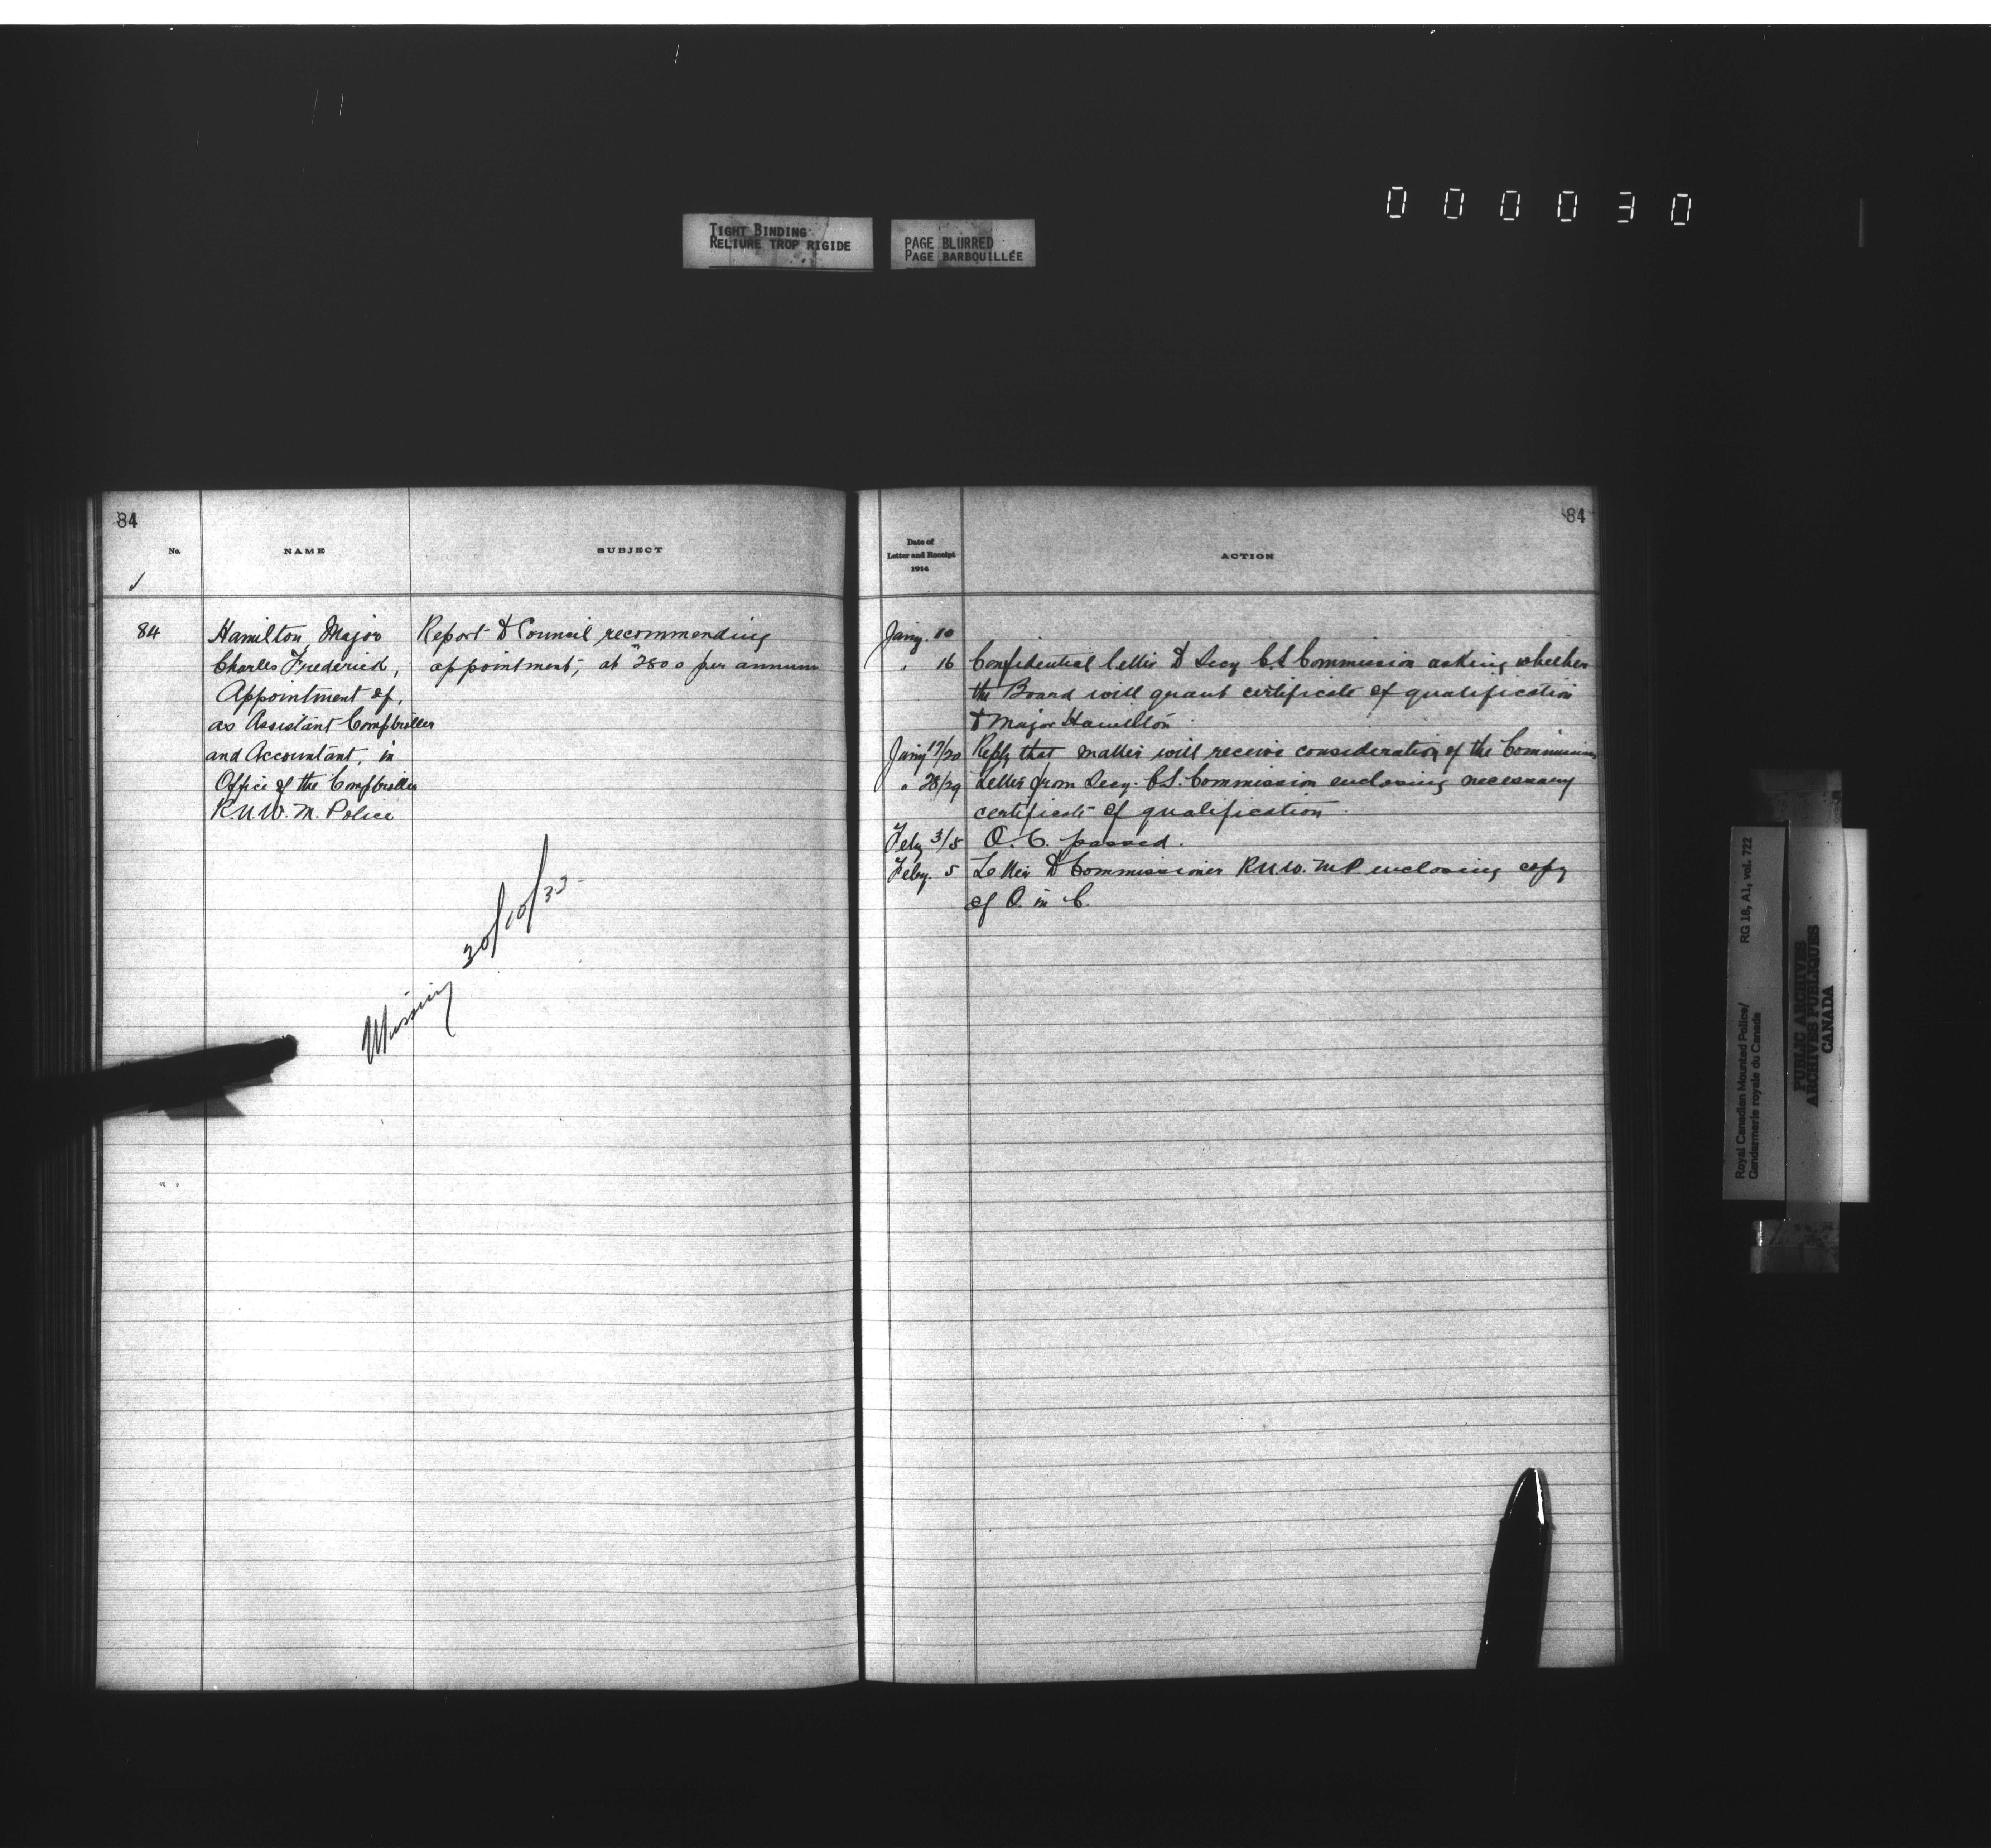 000030
TIGHT BINDING
RELIURE TROP RIGIDE
PAGE BLURRED
PAGE BARBOUILLÉE
84
No.
NAME
SUBJECT
84
Hamilton, Major
Charles Frederick,
Appointment of,
as Assistant Comptroller
and Accountant, in
Office of the Comptroller
R.N.W.M. Police
Report to Council recommending
appointment, at $2800 per annum
Missing 30/10/33
84
Date of
Letter and Receipt
1914
ACTION
Jany. 10
" 16 Confidential letter to Secy C.S. Commission asking whether
the Board will grant certificate of qualification
to Major Hamilton
Jany 17/20 Reply that matter will receive consideration of the Commission
" 28/29 Letter from Secy. C.S. Commission enclosing necessary
certificate of qualification
Feby 3/5 O.C. passed.
Feby. 5 Letter to Commissioner R.N.W.M.P. enclosing copy
of O. in C.
Royal Canadian Mounted Police/ RG 18, A1, vol. 722
Gendarmerie royale du Canada
PUBLIC ARCHIVES
ARCHIVES PUBLIQUES
CANADA